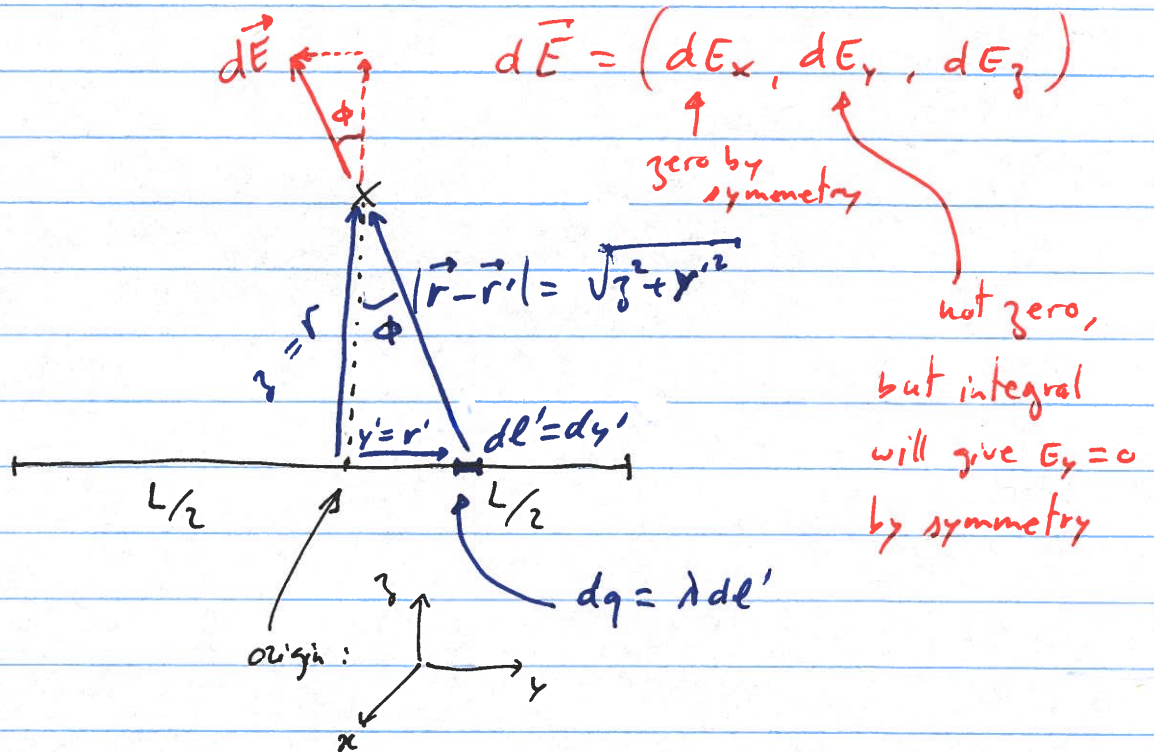 d\vec{E} d\vec{E} = (dE_x, dE_y, dE_z)
ϕ
zero by
symmetry
|\vec{r} - \vec{r}'| = √(z² + y'²)
ϕ
z = r
not zero,
but integral
will give E_y = 0
by symmetry
y' = r' dl' = dy'
L/2 L/2
dq = λ dl'
origin :
z
y
x